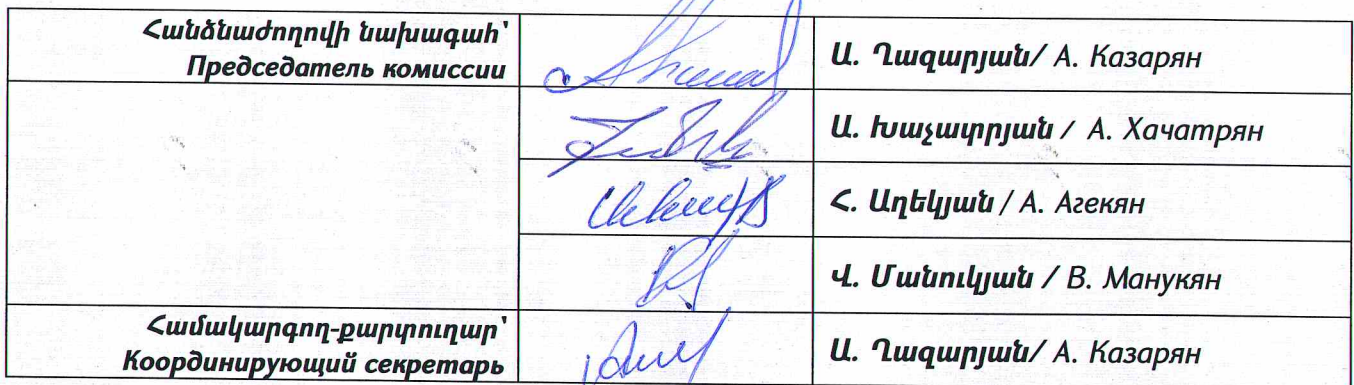 Հանձնաժողովի նախագահ՝
Председатель комиссии
Ա. Ղազարյան/ А. Казарян
Ա. Խաչատրյան / А. Хачатрян
Հ. Աղեկյան / А. Агекян
Վ. Մանուկյան / В. Манукян
Համակարգող-քարտուղար՝
Координирующий секретарь
Ա. Ղազարյան/ А. Казарян